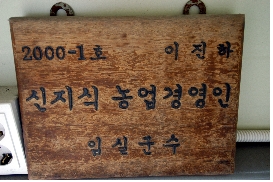 2000-1호 이진하
신지식 농업경영인
임실군수